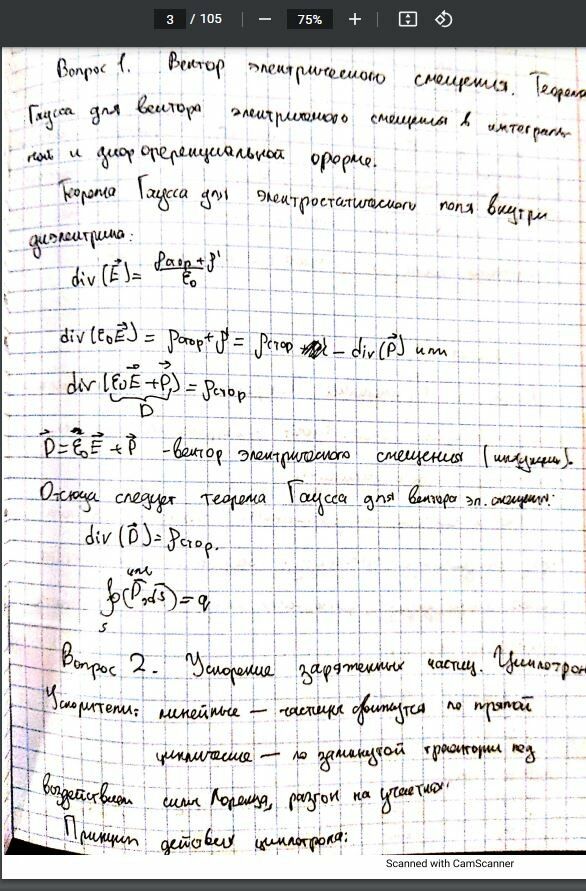 3 / 105 — 75% +
Вопрос 1. Вектор электрического смещения. Теорема
Гаусса для вектора электрического смещения в интеграль-
ной и дифференциальной форме.
Теорема Гаусса для электростатического поля внутри
диэлектрика:
div(E⃗) = (ρстор + ρ')/ε₀
div(ε₀E⃗) = ρстор + ρ' = ρстор − div(P⃗) или
div(ε₀E⃗ + P⃗) = ρстор
D
D⃗ = ε₀E⃗ + P⃗ - вектор электрического смещения (индукции).
Отсюда следует теорема Гаусса для вектора эл. смещения:
div(D⃗) = ρстор.
или
∮(D⃗, dS⃗) = q
S
Вопрос 2. Ускорение заряженных частиц. Циклотрон
Ускорители: линейные — частицы движутся по прямой
циклические — по замкнутой траектории под
воздействием силы Лоренца, разгон на участках
Принцип действия циклотрона:
Scanned with CamScanner